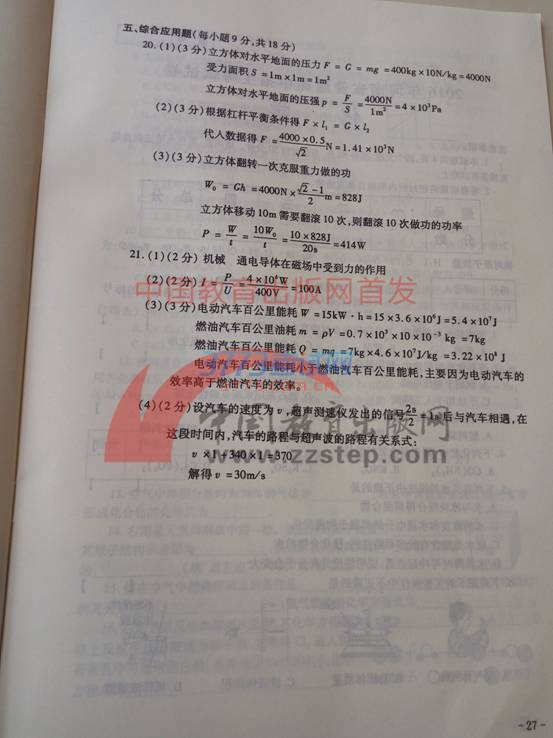 五、综合应用题(每小题9分,共18分)
20.(1)(3分)立方体对水平地面的压力 F = G = mg = 400kg × 10N/kg = 4000N
受力面积 S = 1m × 1m = 1m²
立方体对水平地面的压强 p = F/S = 4000N/1m² = 4 × 10³Pa
(2)(3分)根据杠杆平衡条件得 F × l₁ = G × l₂
代入数据得 F = 4000 × 0.5/√2 N = 1.41 × 10³N
(3)(3分)立方体翻转一次克服重力做的功
W₀ = Gh = 4000N × (√2 - 1)/2 m = 828J
立方体移动10m需要翻滚10次,则翻滚10次做功的功率
P = W/t = 10W₀/t = 10 × 828J/20s = 414W
21.(1)(2分)机械 通电导体在磁场中受到力的作用
(2)(2分) I = P/U = 4 × 10⁴W/400V = 100A
中国教育出版网首发
(3)(3分)电动汽车百公里能耗 W = 15kW·h = 15 × 3.6 × 10⁶J = 5.4 × 10⁷J
燃油汽车百公里油耗 m = ρV = 0.7 × 10³ × 10 × 10⁻³ kg = 7kg
燃油汽车百公里能耗 Q = mq = 7kg × 4.6 × 10⁷J/kg = 3.22 × 10⁸J
电动汽车百公里能耗小于燃油汽车百公里能耗,主要因为电动汽车的
效率高于燃油汽车的效率。
(4)(2分)设汽车的速度为 v,超声测速仪发出的信号 2s/2 = 1s 后与汽车相遇,在
中国教育出版网
这段时间内,汽车的路程与超声波的路程有关系式:
www.zzstep.com
v × 1 + 340 × 1 = 370
解得 v = 30m/s
- 27 -